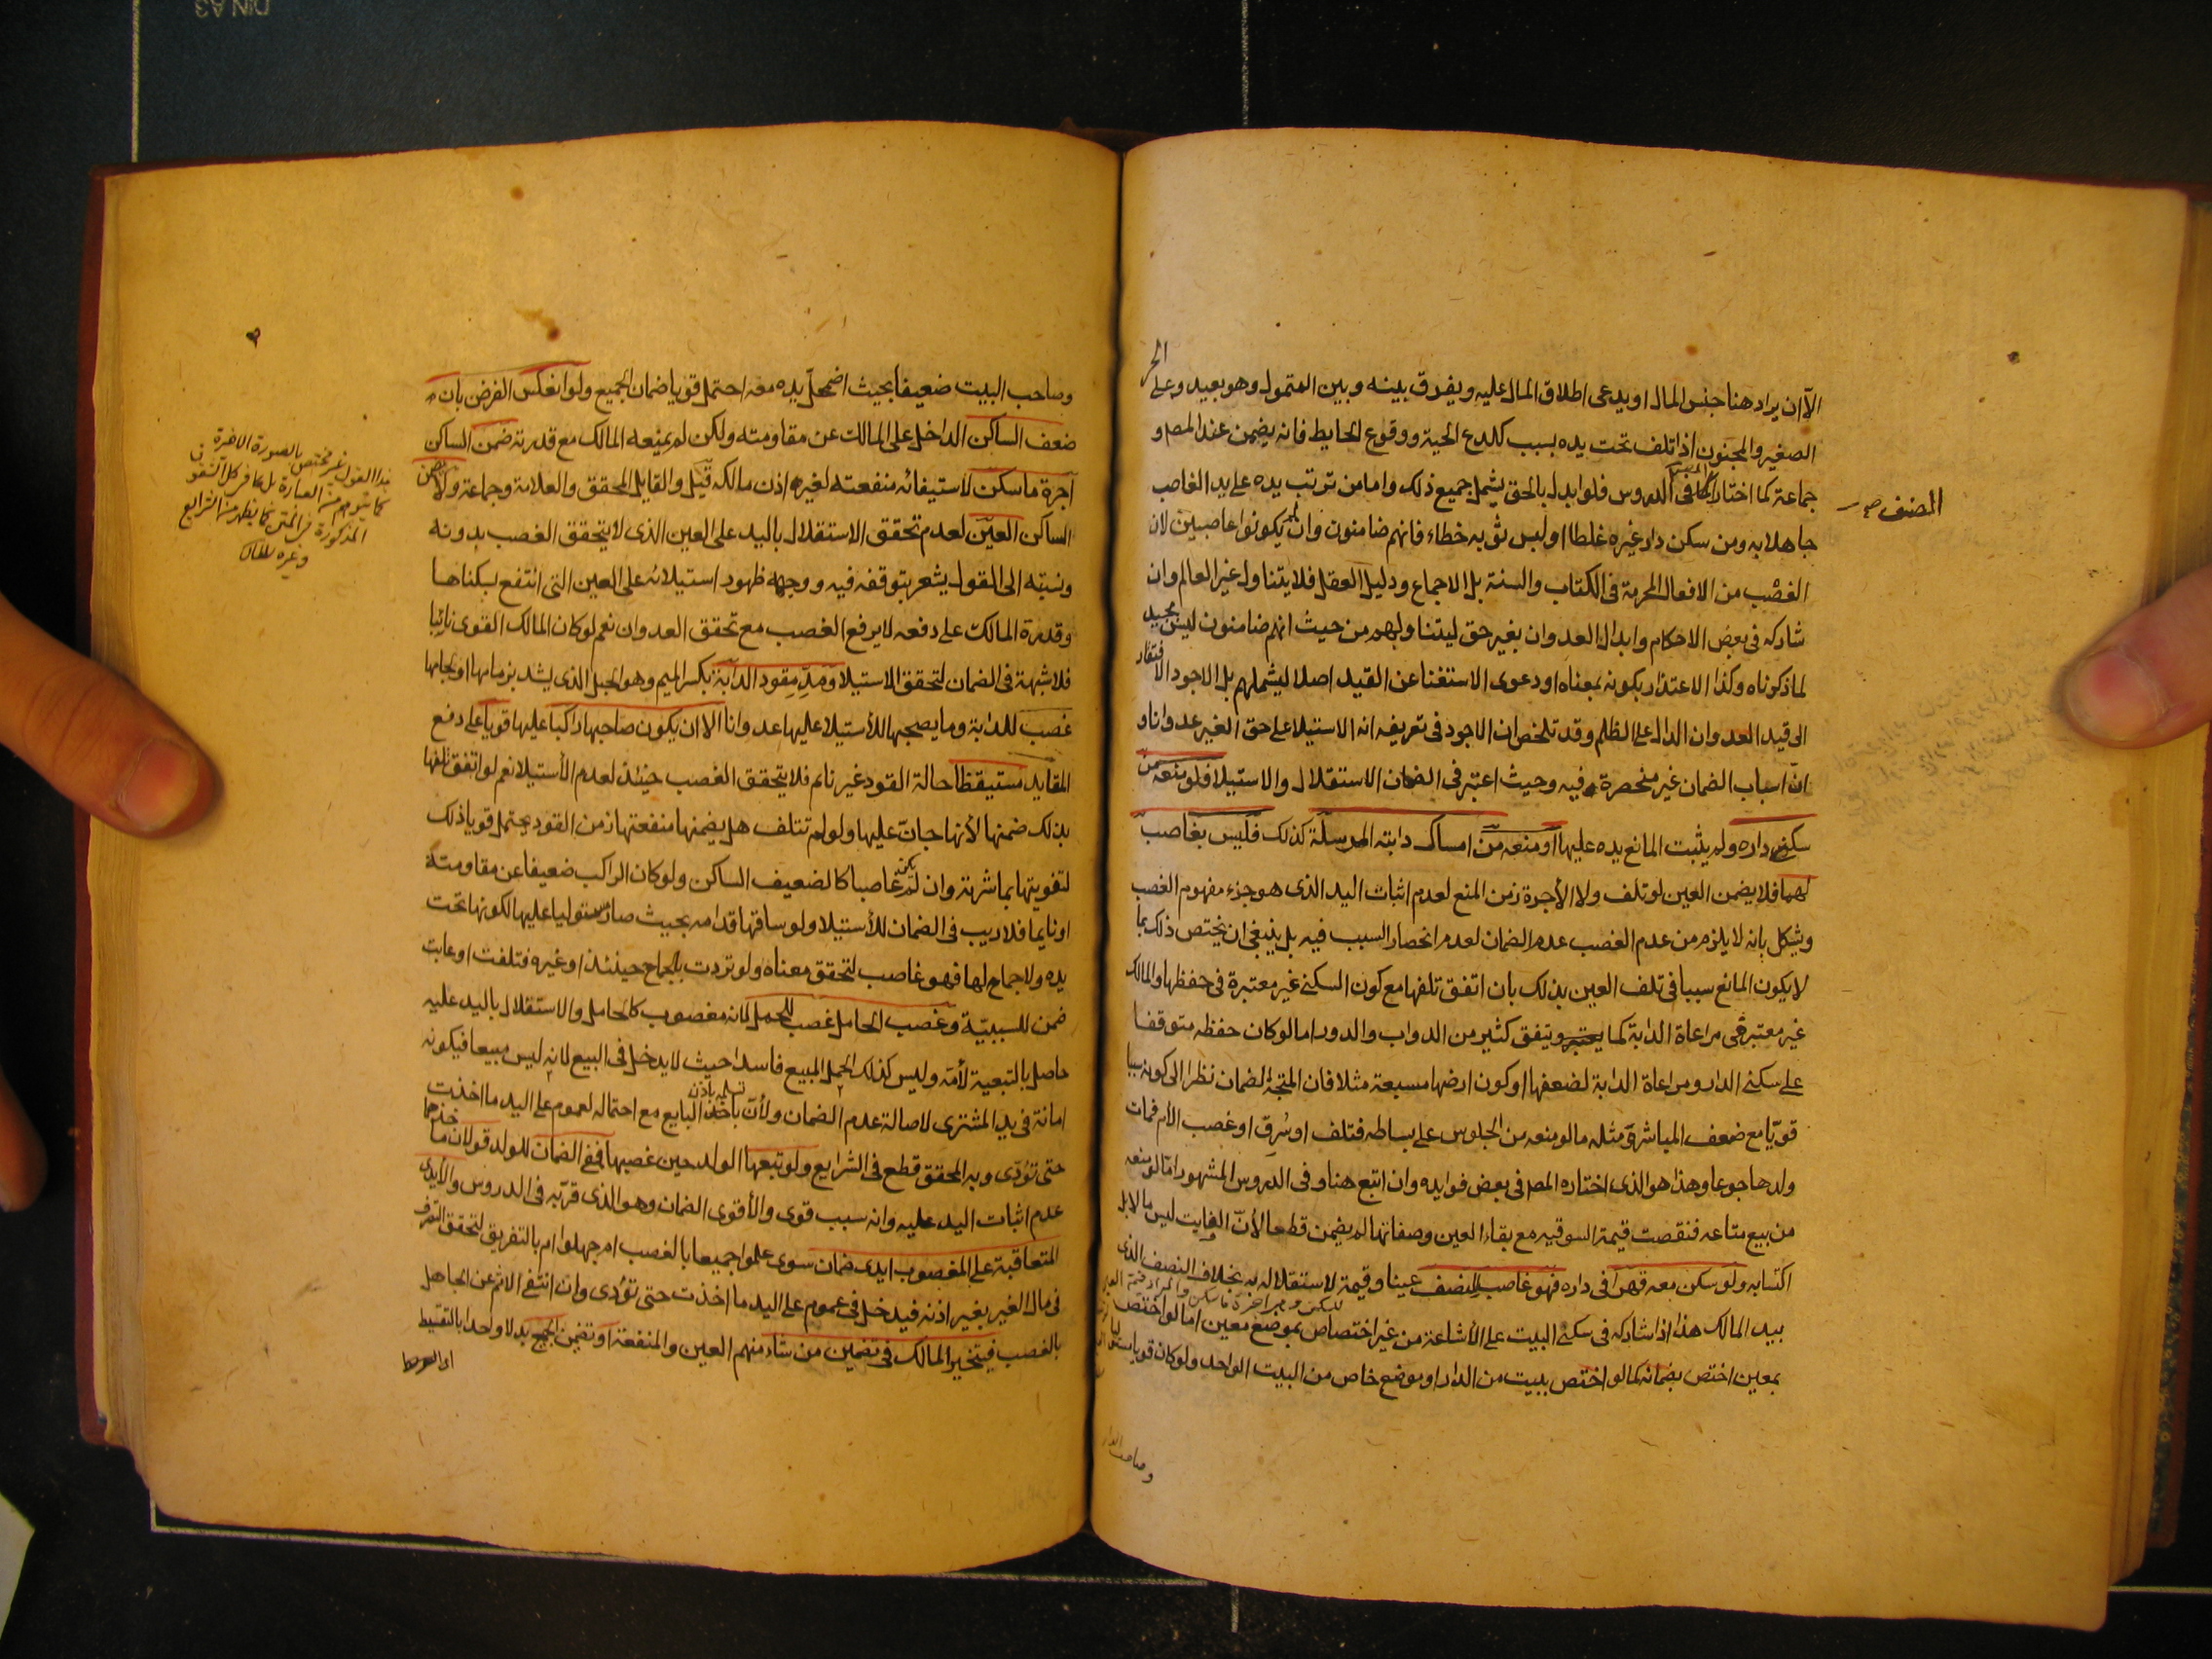 الاّ ان يراد هنا جنس المال او يدعى اطلاق المال عليه ويفرق بينه وبين المتمول وهو بعيد وعلى الحر
الصغير والمجنون اذا تلف تحت يده بسبب كلدع الحية ووقوع الحايط فانه يضمن عند المصـ و
جماعة كما اختاره فى الدروس فلو ابدل بالحق يشمل جميع ذلك واما من ترتب يده على يد الغاصب
المصنف
جاهلا به ومن سكن دار غيره غلطا او لبس ثوبه خطاء فانهم ضامنون وان لم يكونوا غاصبين لان
الغصب من الافعال المحرمة فى الكتاب والسنة بل الاجماع ودليل العقل فلا يتناول غير العالم وان
شاركه فى بعض الاحكام وابدال العدوان بغير حق ليتناولهم من حيث انهم ضامنون ليس بجيد
لما ذكرناه وكذا الاعتذار بكونه بمعناه او دعوى الاستغنا عن القيد اصلا ليشملهم بل الاجود الافتقار
الى قيد العدوان الدال على الظلم وقد تلخص ان الاجود فى تعريفه انه الاستيلا على حق الغير عدوانا و
انّ اسباب الضمان غير منحصرة فيه وحيث اعتبر فى الضمان الاستقلال والاستيلا فلو منعه من
سكنى داره ولم يثبت المانع يده عليها او منعه من امساك دابته المرسلة كذلك فليس بغاصب
لهما فلا يضمن العين لو تلف ولا الأجرة زمن المنع لعدم اثبات اليد الذى هو جزء مفهوم الغصب
ويشكل بانه لا يلزم من عدم الغصب عدم الضمان لعدم انحصار السبب فيه بل ينبغى ان يختص ذلك بما
لا يكون المانع سببا فى تلف العين بذلك بان اتفق تلفها مع كون السكنى غير معتبرة فى حفظها والمالك
غير معتبر فى مراعاة الدابة كما يتفق كثير من الدواب والدور اما لو كان حفظه متوقفا
على سكنى الدار ومراعاة الدابة لضعفها او كون ارضها مسبعة مثلا فان المتجه الضمان نظرا الى كونه سببا
قويّا مع ضعف المباشرة ومثله ما لو منعه من الجلوس على بساطه فتلف او سُرق او غصب الأم فمات
ولدها جوعا وهذا هو الذى اختاره المصـ فى بعض فوايده وان اتبع هنا وفى الدروس المشهور امّا لو منعه
من بيع متاعه فنقصت قيمة السوقيه مع بقاء العين وصفاتها لم يضمن قطعا لأنّ الفايت ليس مالا بل
اكتسابه ولو سكن معه قهرا فى داره فهو غاصب للنصف عينا وقيمة لاستقلاله به بخلاف النصف الذى
بيد المالك هذا اذا شاركه فى سكنى البيت على الأشاعة من غير اختصاص بموضع معين اما لو اختص
بمعين اختص بضمانه كما لو اختص ببيت من الدار او موضع خاص من البيت الواحد ولو كان قويا
وصاحب البيت ضعيفا بحيث اضمحل يده معه احتمل قويا ضمان الجميع ولو انعكس الفرض بان
ضعف الساكن الداخل على المالك عن مقاومته ولكن لم يمنعه المالك مع قدرته ضمن الساكن
اجرة ما سكن لاستيفائه منفعته لغيره اذن مالكه قيل والقايل المحقق والعلامة وجماعة ولا يضمن
الساكن العين لعدم تحقق الاستقلال باليد على العين الذى لا يتحقق الغصب بدونه
ونسبته الى القول يشعر بتوقفه فيه ووجهه ظهور استيلائه على العين التى انتفع بسكناها
وقدرة المالك على دفعه لا يرفع الغصب مع تحقق العدوان نعم لو كان المالك القوى نائبا
فلا شبهة فى الضمان لتحقق الاستيلا ومدّ مِقود الدابّة بكسر الميم وهو الحبل الذى يشد بزمامها او لجامها
غصب للدابة وما يصحبها للأستيلا عليها عدوانا الا ان يكون صاحبها راكبا عليها قويا على دفع
القايد مستيقظا حالة القود غير نائم فلا يتحقق الغصب حينئذ لعدم الأستيلا نعم لو اتفق تلفها
بذلك ضمنها لأنها جان عليها ولو لم تتلف هل يضمنها منفعتها زمن القود يحتمل قويا ذلك
لتفويتها بمباشرته وان لم يكن غاصبا كالضعيف الساكن ولو كان الراكب ضعيفا عن مقاومته
او نايما فلا ريب فى الضمان للأستيلا ولو ساقها قدامه بحيث صار مستوليا عليها لكونها تحت
يده ولا جماح لها فهو غاصب لتحقق معناه ولو تردت بالجماح حينئذ او غيره فتلفت او عابت
ضمن للسببيّة وغصب الحامل غصب للحمل لانه مغصوب كالحامل والاستقلال باليد عليه
حاصل بالتبعية لأمّه وليس كذلك الحمل المبيع فاسدا حيث لا يدخل فى البيع لانه ليس مبيعا فيكون
امانة فى يد المشترى لاصالة عدم الضمان ولأن تسلمه باذن البايع مع احتماله لعموم على اليد ما اخذت
حتى تؤدّى وبه المحقق قطع فى الشرايع ولو تبعها الولد حين غصبها ففى الضمان للولد قولان
عدم اثبات اليد عليه وانه سبب قوى والأقوى الضمان وهو الذى قربّه فى الدروس والأيدى
المتعاقبة على المغصوب ايدى ضمان سوى علموا جميعا بالغصب ام جهلوا ام بالتفريق لتحقق التصرف
فى مال الغير بغير اذنه فيدخل فى عموم على اليد ما اخذت حتى تؤدى وان انتفى الاثم عن الجاهل
بالغصب فيتخير المالك فى تضمين من شاء منهم العين والمنفعة او تضمين الجميع بدلا واحدا بالتقسيط
هذا القول غير مختص بالصورة الاخيرة
كما يتوهم من العبارة بل
المذكورة كما يظهر من الشرايع
وغيره